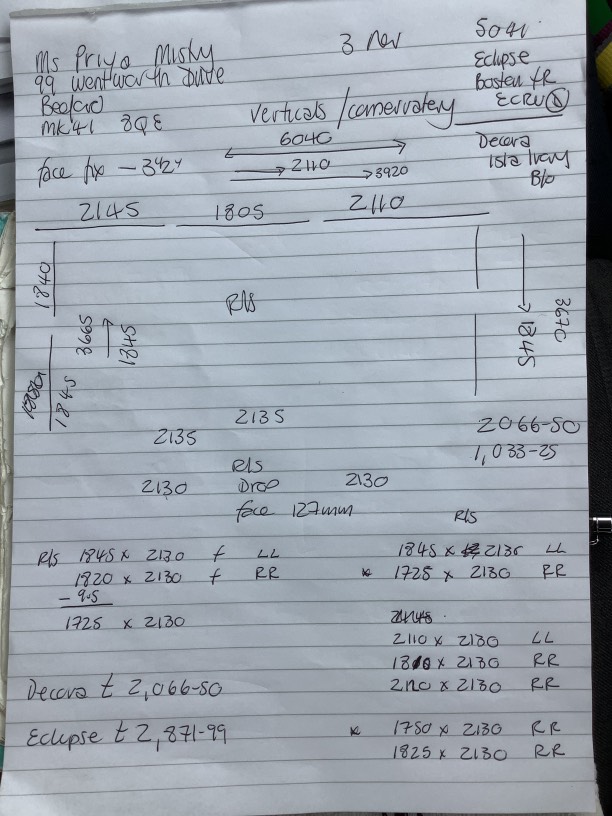 Ms Priya Mistry
99 Wentworth Drive
Bedford
MK41 8QE
3 Nov
5041
Eclipse
Boston FR
ECRU
Verticals / conservatory
6040
face fix - 3 1/2"
2110
3920
Decora
Isla Ivory
B/o
2145 1805 2110
1840
R/s
3665
1845
1845
3670
1845
2135
2135
2066-50
1,033-25
R/s
2130 Drop 2130
face 127mm
R/s
R/s 1845 x 2130 f LL
1820 x 2130 f RR
- 95
1725 x 2130
1845 x 2130 LL
* 1725 x 2130 RR
2110 x 2130 LL
1810 x 2130 RR
2120 x 2130 RR
Decora £ 2,066-50
Eclipse £ 2,871-99
* 1750 x 2130 RR
1825 x 2130 RR